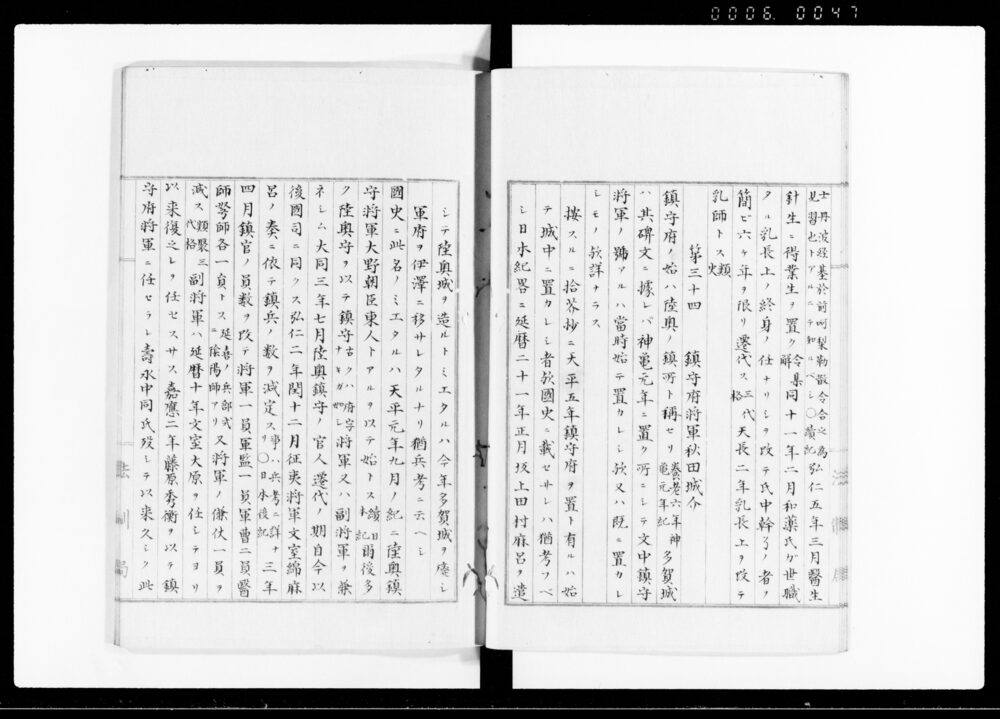 0006. 0047
士丹波経基於前呵梨勒散令合之為
見習也トアルニテ知ルベシ〇續紀 弘仁五年三月醫生
針生ニ得業生ヲ置ク 令集解 同十一年二月和藥氏ガ世職
タル乳長上ノ終身ノ任ナリシヲ改テ氏中幹了ノ者ヲ
簡ビ六ケ年ヲ限リ遷代ス 三代格 天長二年乳長上ヲ改テ
乳師トス 類史
第三十四 鎮守府将軍秋田城介
鎮守府ノ始ハ陸奥ノ鎮所ト稱セリ 養老六年神亀元年紀 多賀城
ハ其碑文ニ據レバ神亀元年ニ置ク所ニシテ文中鎮守
将軍ノ號アルハ當時始テ置カレシ歟又ハ既ニ置カレ
シモノ歟詳ナラス
按スルニ拾芥抄ニ天平五年鎮守府ヲ置ト有ルハ始
テ城中ニ置カレシ者歟國史ニ載セサレハ猶考フベ
シ日本紀畧ニ延暦二十一年正月坂上田村麻呂ヲ遣
シテ陸奥城ヲ造ルトミエタルハ今年多賀城ヲ廢シ
軍府ヲ伊澤ニ移サレタルナリ猶兵考ニ云ヘシ
國史ニ此名ノミエタルハ天平元年九月ノ紀ニ陸奥鎮
守将軍大野朝臣東人トアルヲ以テ始トス 續日本紀 爾後多
ク陸奥守ヲ以テ鎮守 古クハ府字ナキガ如シ 将軍又ハ副将軍ヲ兼
ネシム大同三年七月陸奥鎮守ノ官人遷代ノ期自今以
後國司ニ同クス弘仁二年閏十二月征夷将軍文室綿麻
呂ノ奏ニ依テ鎮兵ノ數ヲ減定スリ 事ハ兵考ニ詳ナ〇日本後紀 三年
四月鎮官ノ員數ヲ改テ将軍一員軍監一員軍曹二員醫
師弩師各一員トス 延喜ノ兵部式ニ陰陽師アリ 又将軍ノ傔仗一員ヲ
減ス 類聚三代格 副将軍ハ延暦十年文室大原ヲ任シテヨリ
以来復之レヲ任セスサス嘉應二年藤原秀衡ヲ以テ鎮
守府将軍ニ任セラレ壽永中同氏歿シテ以来久シク此
法制局